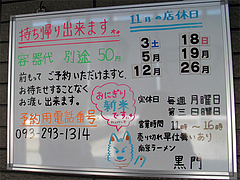 持ち帰り出来ます。
容器代 別途 50円
前もって ご予約いただけますと
お待たせすることなく
お渡し出来ます。
予約用電話番号
093-293-1314
おにぎり
新米
です。
11月の店休日
3土 18日
5月 19月
12日 26日
定休日 毎週 月曜日
第三 日曜日
営業時間 11時～16時
売り切れ早仕舞いあり
南京ラーメン
黒門